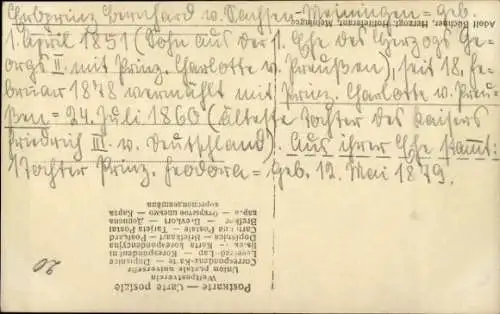 Erbprinz Bernhard v. Sachsen-Meiningen = geb.
1. April 1851 (Sohn aus der 1. Ehe des Herzogs Ge-
orgs II. mit Prinz. Charlotte v. Preußen), seit 18. Fe-
bruar 1878 vermählt mit Prinz. Charlotte v. Preu-
ßen = 24. Juli 1860 (älteste Tochter des Kaisers
Friedrich III. v. Deutschland). Aus ihrer Ehe stammt:
1 Tochter Prinz. Feodora = geb. 12. Mai 1879.
Adolf Büchner, Herzogl. Hoflieferant, Meiningen.
20
Postkarte — Carte postale
Weltpostverein
Union postale universelle
Correspondenz-Karte — Dopisnice
Levelező-Lap — Korrespondenzkort
karta korespondencyjna
Dopisnica — Briefkaart — Postcard
Cartolina postale — Tarjeta Postal
Brefkort — Дописница
Открытое письмо — Карта